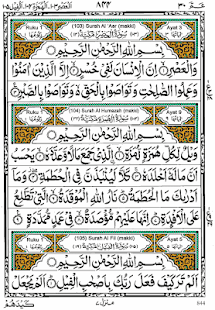 العصر ١٠٣ الهمزة ١٠٤ الفيل ١٠٥
٨٢٢
عم ٣٠
Ruku 1 (103) Surah Al 'Asr (makki) Ayat 3
بِسْمِ اللهِ الرَّحْمٰنِ الرَّحِيْمِ
وَالْعَصْرِ اِنَّ الْاِنْسَانَ لَفِيْ خُسْرٍ اِلَّا الَّذِيْنَ اٰمَنُوْا
وَعَمِلُوا الصّٰلِحٰتِ وَتَوَاصَوْا بِالْحَقِّ وَتَوَاصَوْا بِالصَّبْرِ
Ruku 1 (104) Surah Al Humazah (makki) Ayat 9
بِسْمِ اللهِ الرَّحْمٰنِ الرَّحِيْمِ
وَيْلٌ لِّكُلِّ هُمَزَةٍ لُّمَزَةٍ الَّذِيْ جَمَعَ مَالًا وَّعَدَّدَهٗ يَحْسَبُ
اَنَّ مَالَهٗٓ اَخْلَدَهٗ كَلَّا لَيُنْۢبَذَنَّ فِي الْحُطَمَةِ وَمَآ اَدْرٰىكَ
مَا الْحُطَمَةُ نَارُ اللهِ الْمُوْقَدَةُ الَّتِيْ تَطَّلِعُ
عَلَى الْاَفْـِٕدَةِ اِنَّهَا عَلَيْهِمْ مُّؤْصَدَةٌ فِيْ عَمَدٍ مُّمَدَّدَةٍ
Ruku 1 (105) Surah Al Fil (makki) Ayat 5
بِسْمِ اللهِ الرَّحْمٰنِ الرَّحِيْمِ
اَلَمْ تَرَ كَيْفَ فَعَلَ رَبُّكَ بِاَصْحٰبِ الْفِيْلِ اَلَمْ يَجْعَلْ
كَيْدَهُمْ
منزل